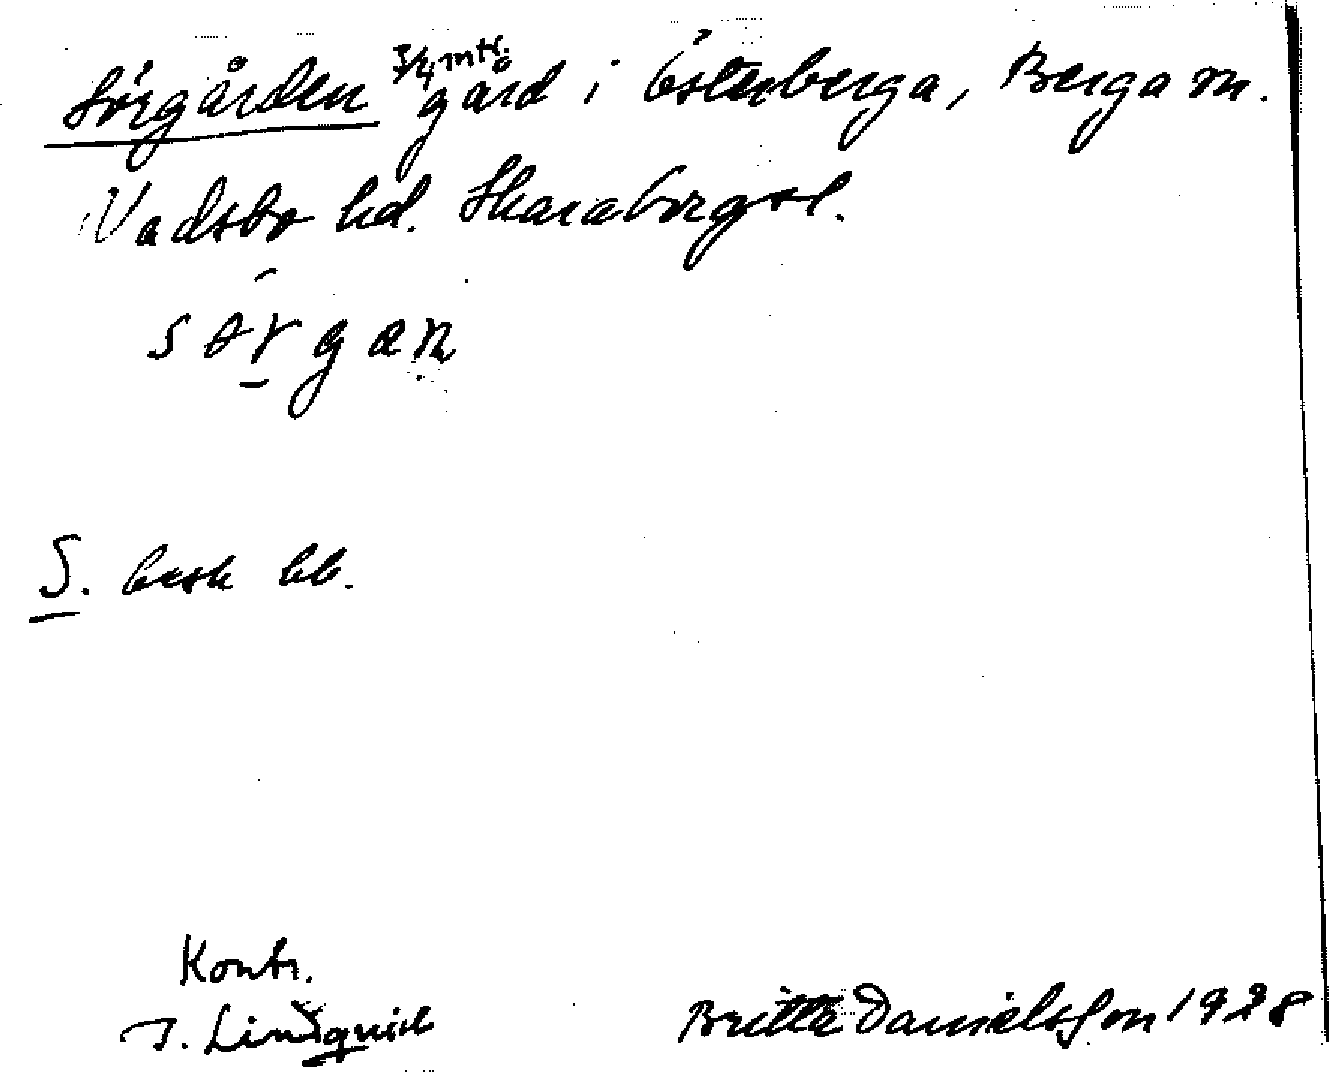 Sörgården 3/4 mtl. gård i Österberga, Berga sn.
Vadsbo hd. Skaraborgs l.
sörgan
S. besk bb.
Kontr.
I. Lindquist
Britta Danielsson 1928